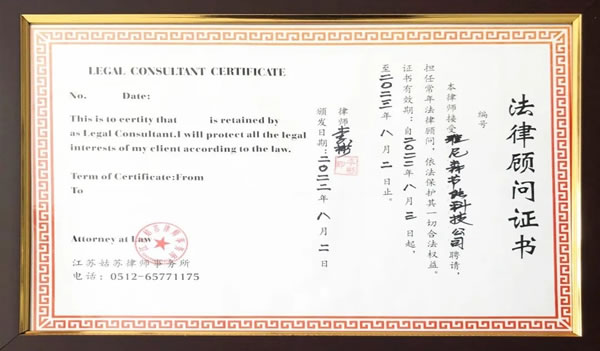 法律顾问证书
编号
本律师接受雅尼森节能科技公司聘请，
担任常年法律顾问，依法保护其一切合法权益。
证书有效期：自二〇二二年八月三日起，
至二〇二三年八月二日止。
律师
颁发日期：二〇二二年八月二日
LEGAL CONSULTANT CERTIFICATE
No. Date:
This is to certity that is retained by
as Legal Consultant.I will protect all the legal
interests of my client according to the law.
Term of Certificate:From
To
Attorney at Law
江苏姑苏律师事务所
电话：0512-65771175